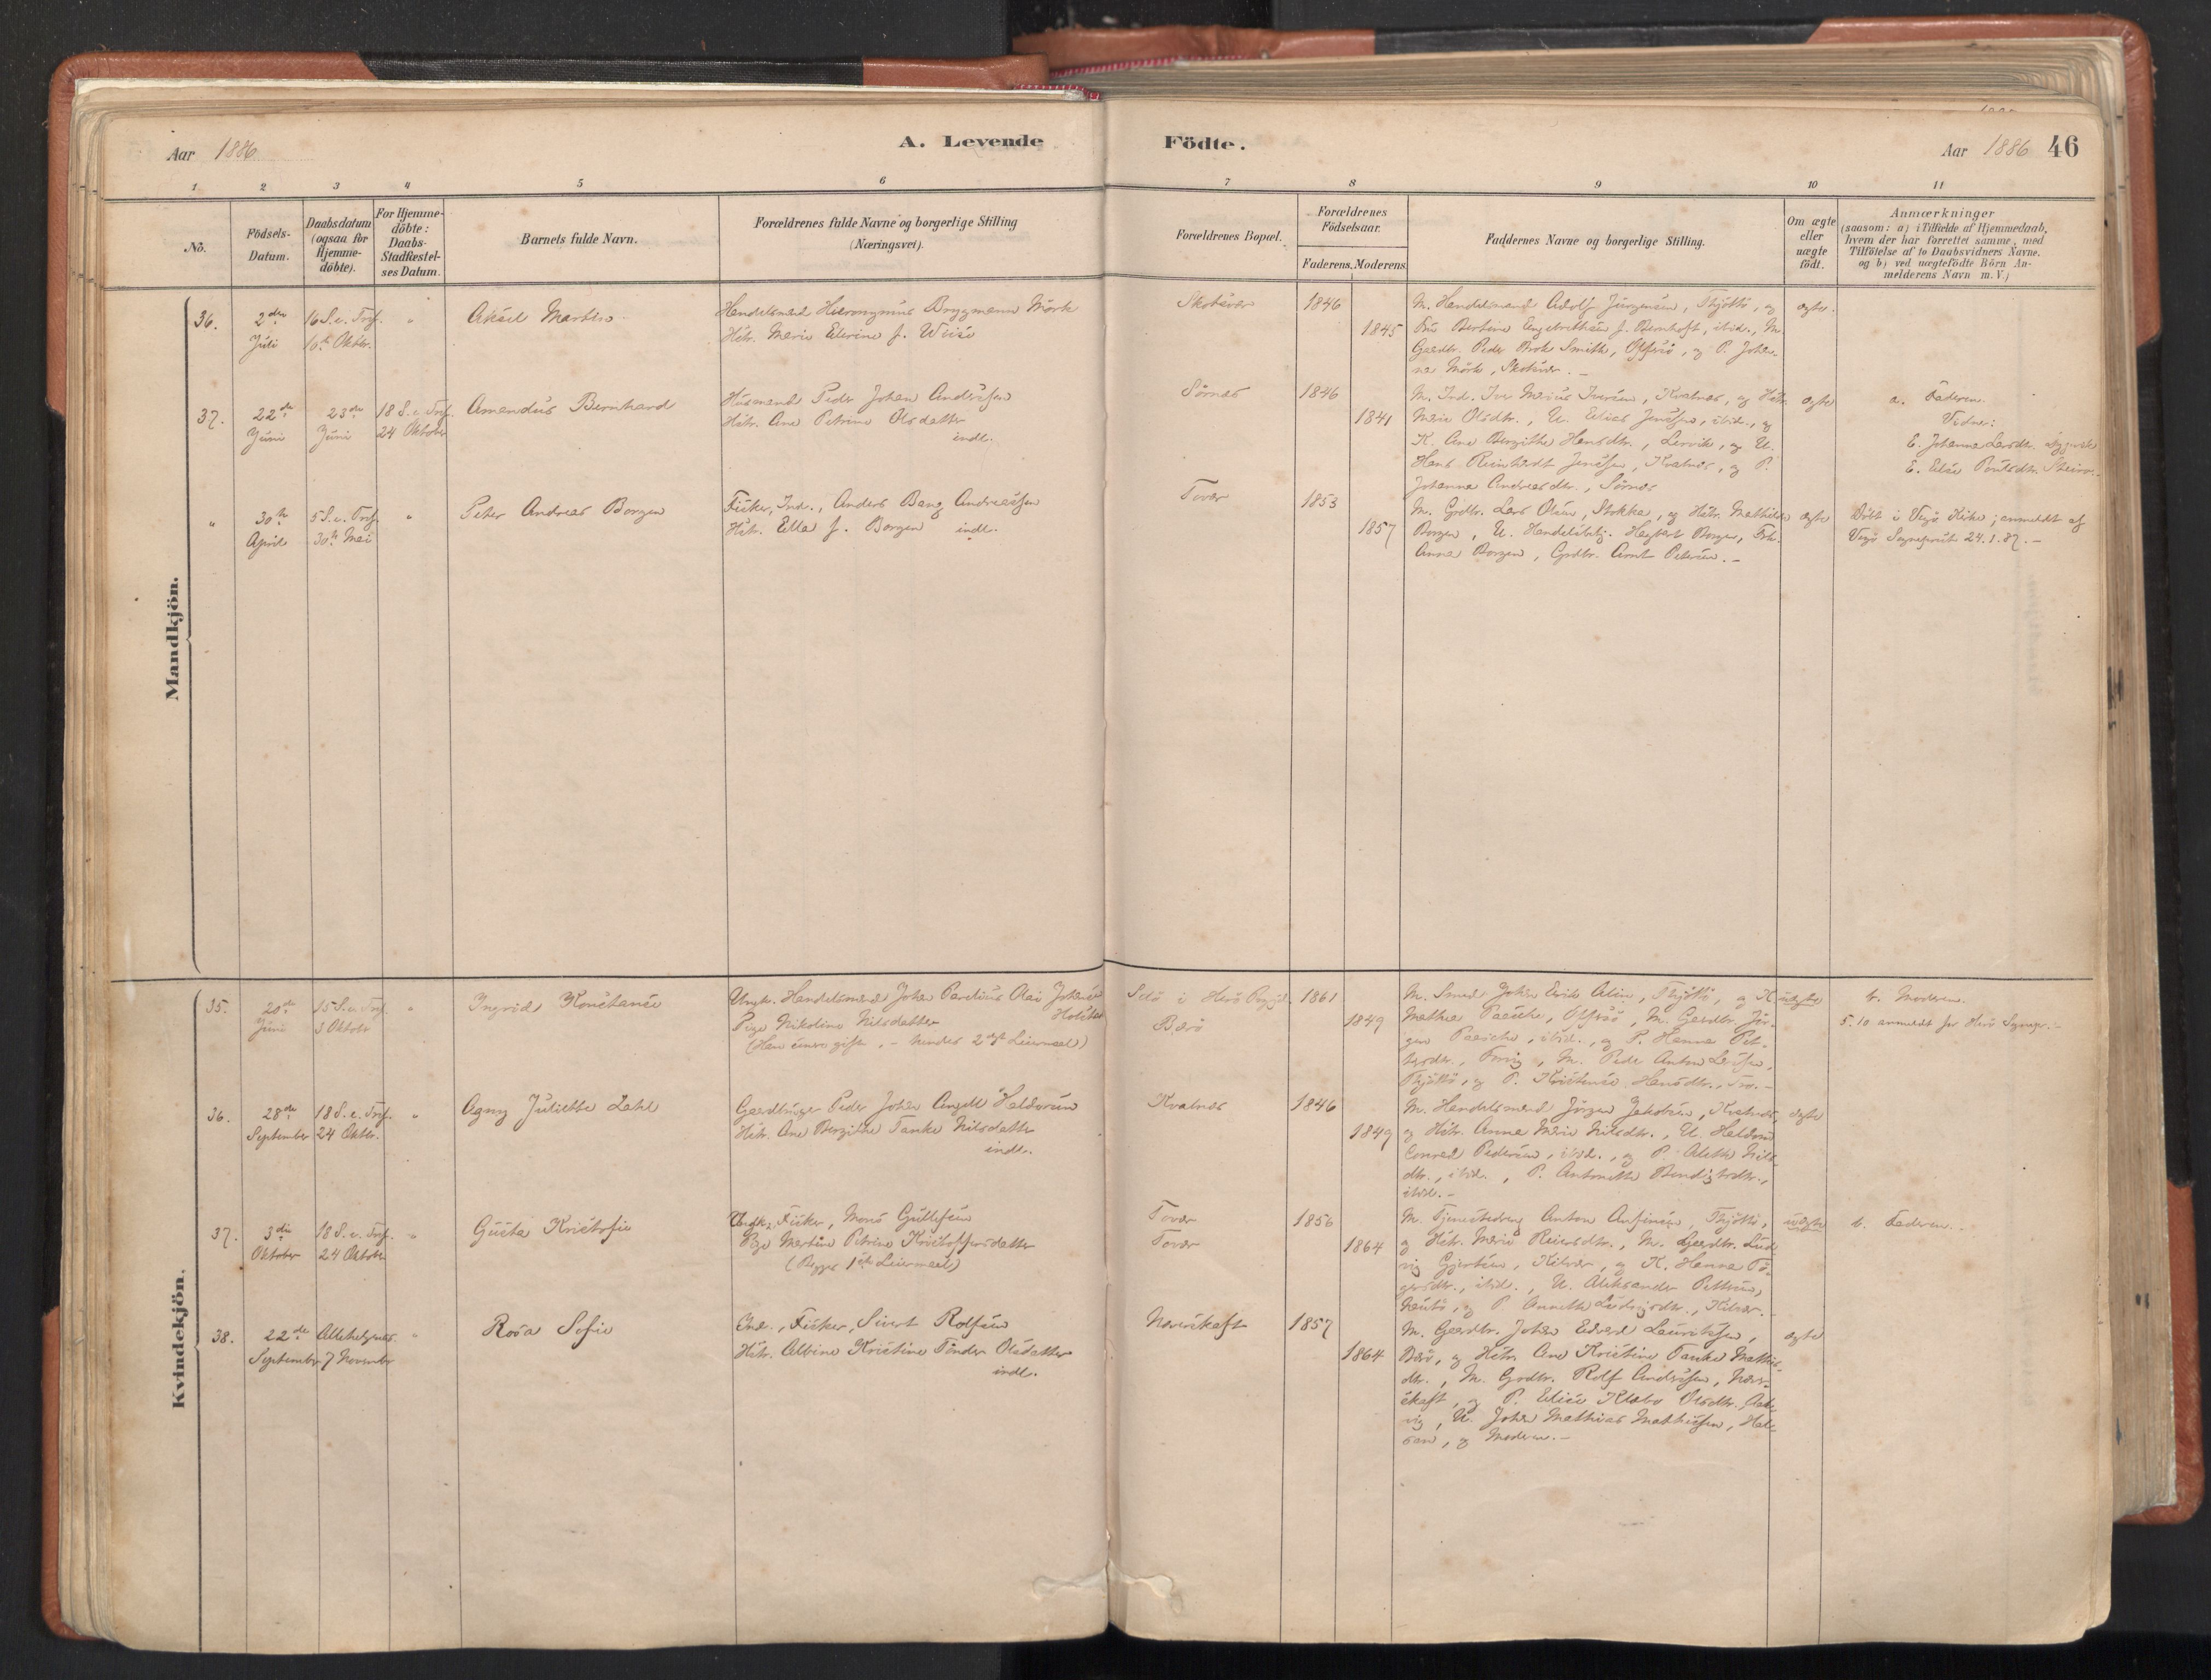 Aar 1886
A. Levende
Födte.
Aar 1886 46
1 2 3 4 5 6 7 8 9 10 11
No.
Födsels-
Datum.
Daabsdatum
(ogsaa for
Hjemme-
döbte).
For Hjemme-
döbte:
Daabs-
Stadfæstel-
ses Datum.
Barnets fulde Navn.
Forældrenes fulde Navne og borgerlige Stilling
(Næringsvei).
Forældrenes Bopæl.
Forældrenes
Födselsaar.
Faderens. Moderens.
Faddernes Navne og borgerlige Stilling.
Om ægte
eller
uægte
födt.
Anmærkninger
(saasom: a) i Tilfælde af Hjemmedaab,
hvem der har forrettet samme, med
Tilföielse af to Daabsvidners Navne.
og b) ved uægtefödte Börn An-
melderens Navn m. V.)
Mandkjön.
36.
2den
Juli
16 S. e. Tref.
10de Oktbr.
"
Aksel Martin
Handelsmand Hieronymus Brygmann Mörk
Hstr. Marie Elerine f. Wiise
Skotsvær
1846
1845
M. Handelsmand Adolf Jürgensen, Thjöttö, og
Fru Bertine Engebrethsen f. Bernhoft, ibid., M.
Gaardbr. Peder Brok Smith, Offersö, og P. Johan-
na Mörk, Skotsvær. -
ægte.
37.
22de
Juni
23de
Juni
18 S. e. Tref.
24 Oktober
Amandus Bernhard
Husmand Peder Johan Andersen
Hstr. Ane Petrine Olsdatter
indl.
Sörnes
1846
1841
M. Ind. Iver Marius Iversen, Kvalnes, og Hstr.
Marie Olsdtr., U. Elias Jensen, ibid., og
K. Ane Bergitha Hansdtr., Lervik, og U.
Hans Reinhardt Jensen, Kvalnes, og P.
Johanna Andreasdtr., Sörnes
ægte
a. Faderen.
Vidner:
E. Johanna Larsdtr.
E. Elise Poulsdtr.
"
30te
April
5 S. e. Tref.
30te Mai
"
Peter Andreas Borgen
Fisker, Ind., Anders Bang Andreassen
Hstr. Ella f. Borgen indl.
Tovær
1853
1857
M. Grdbr. Lars Olsen, Stokka, og Hstr. Mathilde
Borgen, U. Handelsbetj. Hagbart Borgen, Frk.
Anna Borgen, Grdbr. Arnt Petersen. -
ægte
Döbt i Vegö Kirke; anmeldt af
Vegö Sogneprest 24.1.87. -
Kvindekjön.
35.
20de
Juni
15 S. e. Tref.
3 Oktobr
"
Ingrid Konstanse
Ungk. Handelsmand Johan Parelius Olai Johansen
Pige Nikoline Nilsdatter
(Han senere gift. - hendes 2det Leiermaal)
Selö i Herö Prgjd.
Bærö
1861
1849
M. Smed Johan Erik Alin, Thjöttö, og K.
Mathea Paasche, Offersö, M. Gaardbr. Jör-
gen Paasche, ibid., og P. Hanna Pet-
tersdtr., Forvig, M. Peder Anton Larsen,
Thjöttö, og P. Kristense Hansdtr., Tro. -
uægte
b. Moderen.
5.10 anmeldt for Herö Sognepr. -
36.
28de
September
18 S. e. Tref.
24 Oktbr.
"
Agny Juliette Zahl
Gaardbruger Peder Johan Angell Haldorsen
Hstr. Ane Bergitha Tanke Nilsdatter
indl.
Kvalnes
1846
1849
M. Handelsmand Jörgen Jakobsen, Kvalnes,
og Hstr. Anna Marie Nilsdtr., U. Haldor
Conrad Pedersen, ibid., og P. Aletha Nils-
dtr., ibid., P. Antonette Bendigtsdtr.,
ibid. -
ægte
37.
3die
Oktober
18 S. e. Tref.
24 Oktober
"
Gusta Kristofie
Ungk., Fisker, Mons Gullesen
Pge Martine Petrine Kristoffersdatter
(Begges 1ste Leiermaal)
Tovær
Tovær
1856
1864
M. Tjenestedreng Anton Anfinsen, Thjöttö,
og Hstr. Marie Reinsdtr., M. Gaardbr. Lud-
vig Gjertsen, Kilvær, og K. Hanna
ibid., U. Aleksander Pettersen,
og P. Annetha Ludvigsdtr., Kilvær. -
uægte
b. Faderen.
38.
22de
September
Allehelgens.
7 November
"
Rosa Sofie
Ind., Fisker, Sivert Rolfsen
Hstr. Albine Kristine Tönder Olsdatter
indl.
Naverskaft
1857
1864
M. Gaardbr. Johan Edvard Lauritssen,
Bærö, og Hstr. Ane Kristine Tanke Mathis-
dtr., M. Grdbr. Rolf Andersen, Naver-
skaft, og P. Elise Klæbo Olsdtr.,
U. Johan Mathias Mathissen,
og Moderen. -
ægte